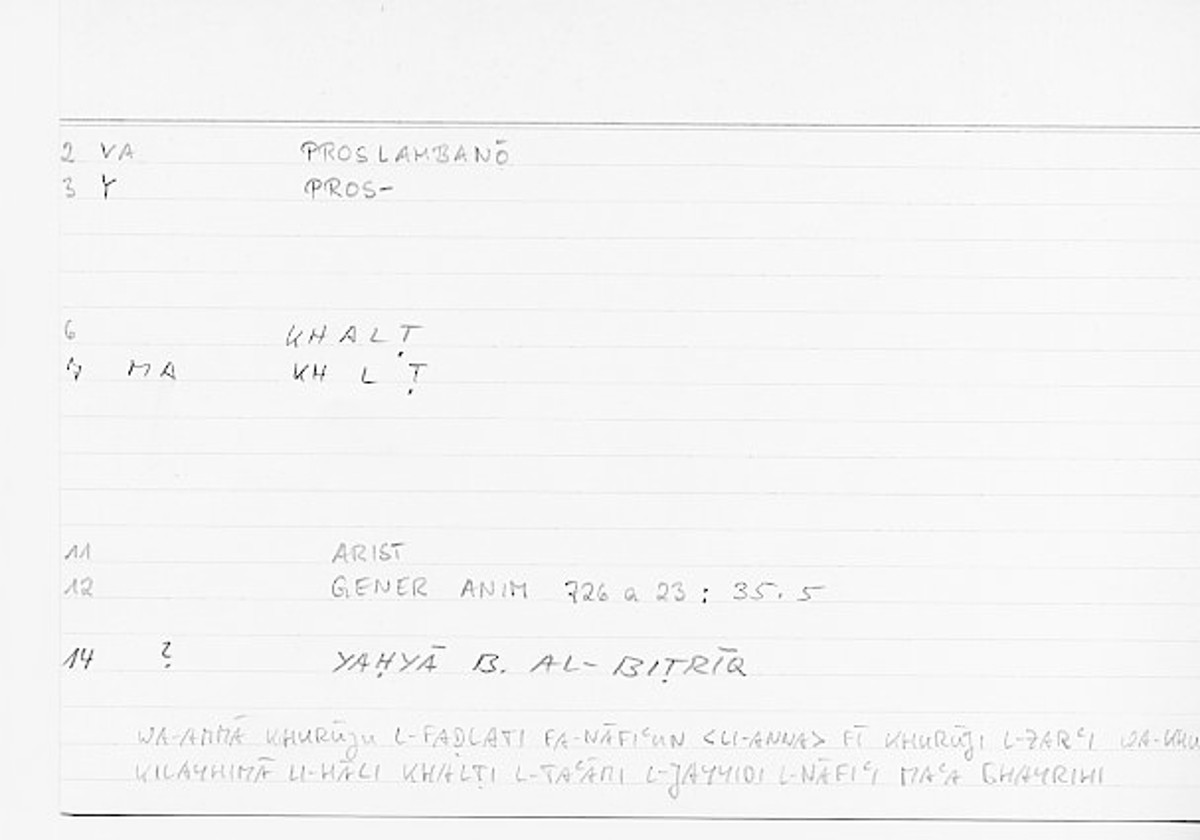 2 VA PROSLAMBANŌ
3 Y PROS-
6 KHALṬ
7 MA KH L Ṭ
11 ARIST
12 GENER ANIM 726 a 23 : 35.5
14 ? YAḤYĀ B. AL-BIṬRĪQ
WA-AMMĀ KHURŪJU L-FAḌLATI FA-NĀFIʿUN <LI-ANNA> FĪ KHURŪJI L-ZARʿI WA-KHU
KILAYHIMĀ LI-ḤĀLI KHALṬI L-ṬAʿĀMI L-JAYYIDI L-NĀFIʿI MAʿA GHAYRIHI